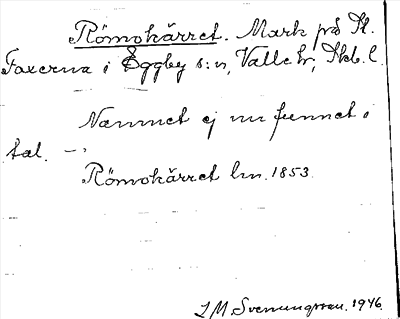 Römokärret. Mark på St.
Faxerna i Eggby s:n, Valle hr, Skb. l.
Namnet ej nu funnet i
tal. –
Römokärret lm. 1853.
I M Svenungsson. 1946.